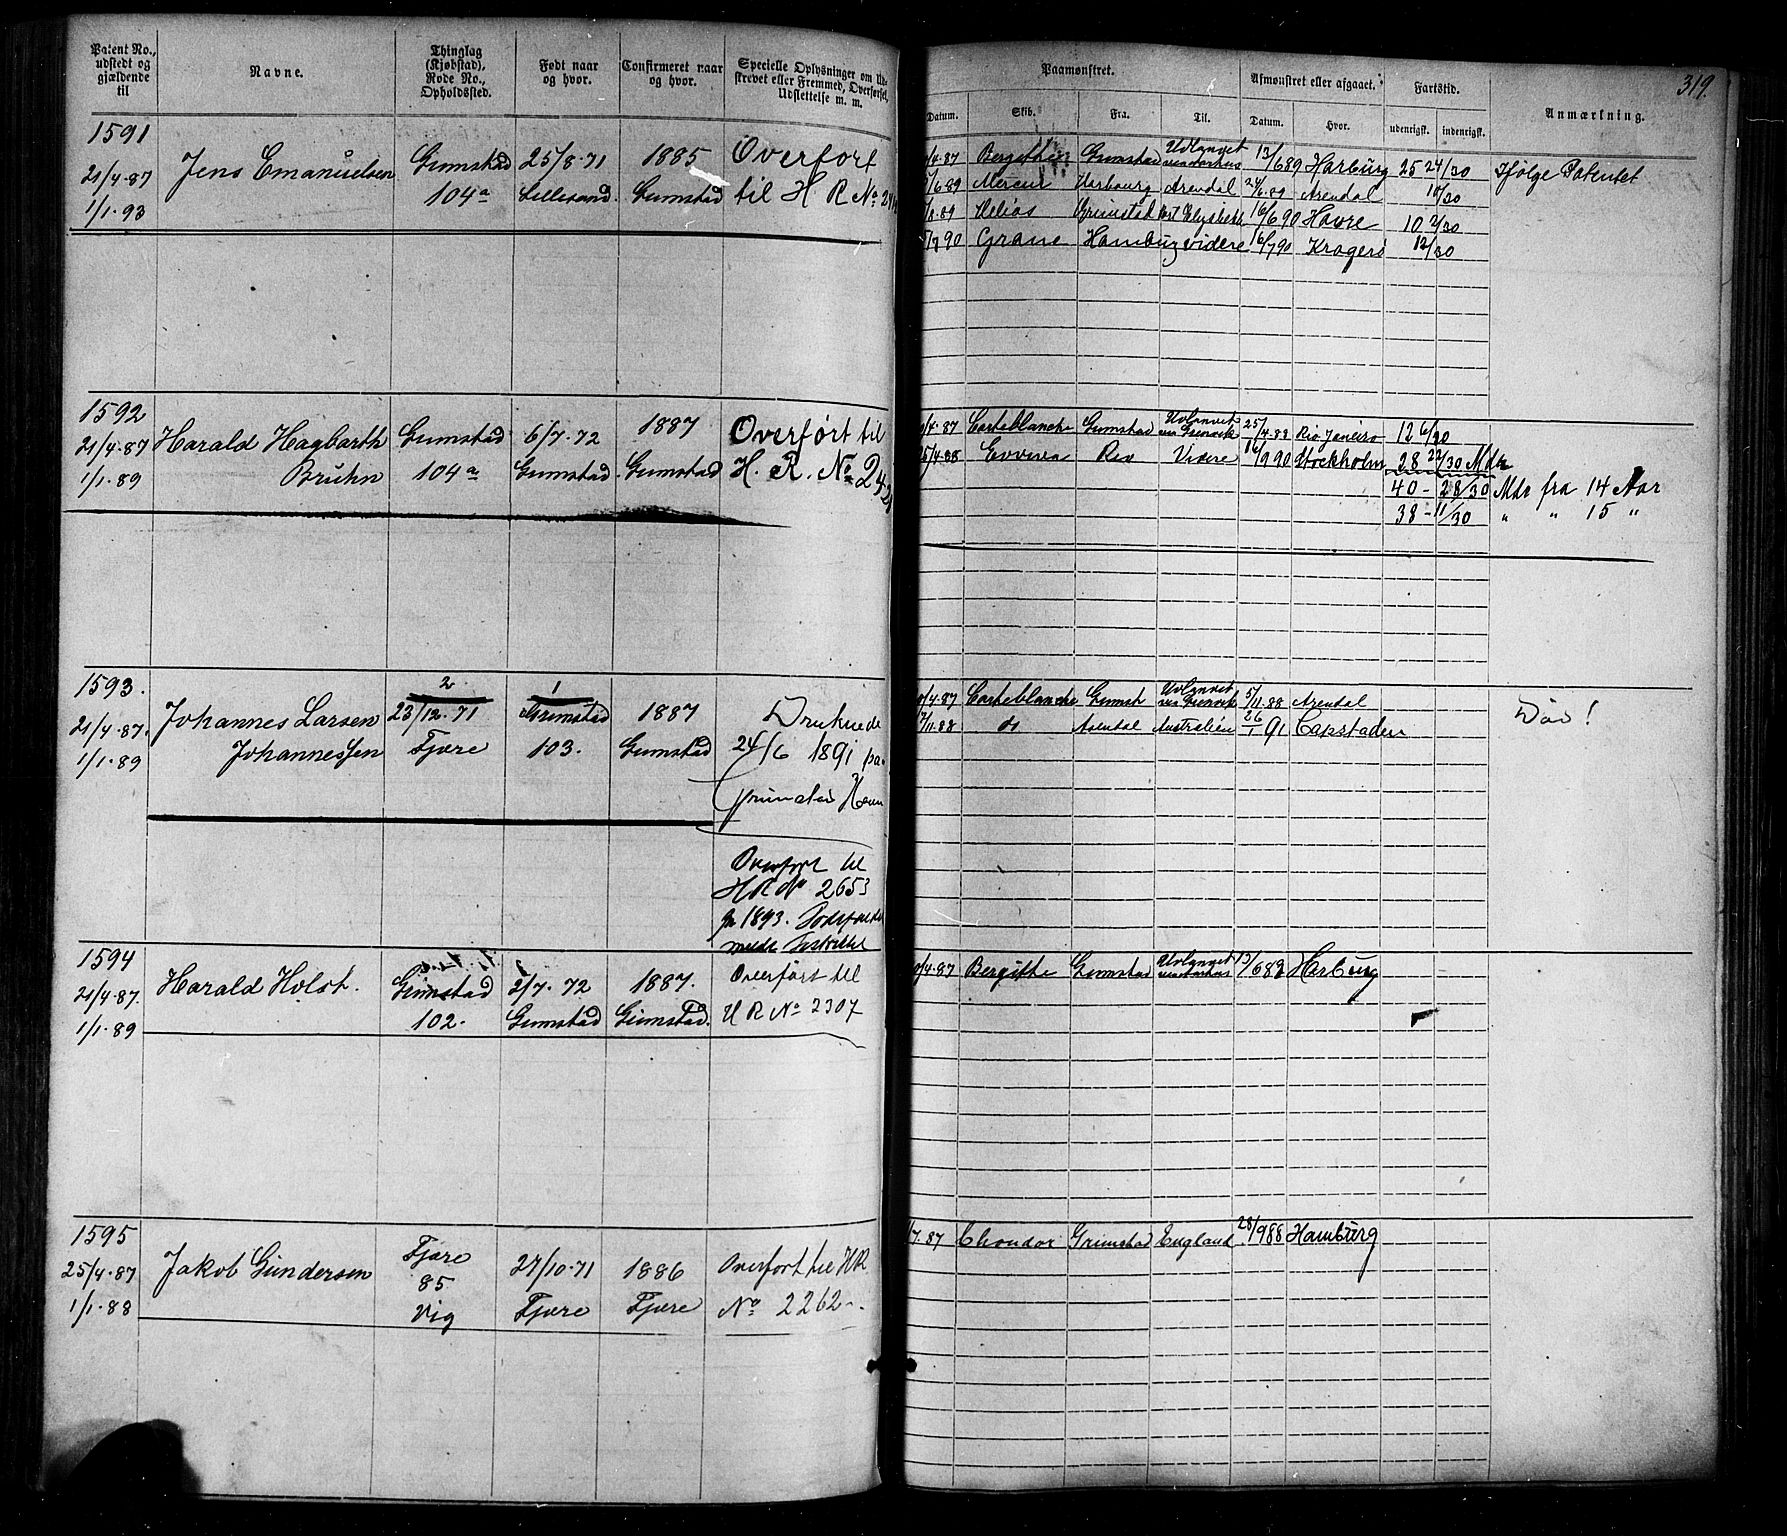 Patent No., udstedt og gjældende til
Navne.
Thinglag (Kjøbstad), Rode No., Opholdssted.
Født naar og hvor.
Confirmeret naar og hvor.
Specielle Oplysninger om Udskrevet eller Fremmed, Overførsel, Udslettelse m. m.
Paamønstret.
Afmønstret eller afgaaet.
Fartstid.
Anmærkning.
319.
Datum. Skib. Fra. Til. Datum. Hvor. udenrigsk. indenrigsk.
1591
21/4.87
1/1.93
Jens Emanuelsen
Grimstad
104a
25/8.71
Lillesand.
1885
Grimstad
Overført
til H R No
4.87 Bergithe Grimstad Udlandet 13/6 89 Harburg 25 24/30 Ifølge Patentet
/6 89 Mercur Harbourg Arendal Arendal 18/30
/8.89 Helios Grimstad 16/6 90 Havre 10 2/30
/7 90 Grane Hamburg videre 16/7 90 Kragerö 12/30
1592
21/4.87
1/1.89
Harald Hagbarth
Bruhn
Grimstad
104a
6/7.72
Grimstad
1887
Grimstad
Overført til
H. R. No 242
/4.87 Carteblanche Grimstad Udlandet 25/4.88 Rio Janeiro 12 6/30
/4.88 Rio Videre 16/9 90 Stockholm 28 22/30 Mdr
40 - 28/30 Mdr fra 14 Aar
38 - 11/30 " " 15 "
1593.
21/4.87.
1/1.89
Johannes Larsen
Johannessen
2
23/12.71
Fjære
1
Grimstad
103.
1887
Grimstad
Druknede
24/6 1891 paa
Grimstad Havn
Overført til
HR No 2653
pr 1893.
/4.87 Carteblanche Grimst Udlandet 5/11.88 Arendal Död!
/11.88 do Arendal Australien 26/1 91 Capstaden
1594
21/4.87.
1/1.89
Harald Holst.
Grimstad
102.
2/7.72
Grimstad
1887.
Grimstad.
Overført til
U R No 2307
/4.87 Bergithe Grimstad Udlandet 13/6 89 Harburg
1595
25/4.87
1/1.88
Jakob Gundersen
Fjære
85
Vig
27/10.71
Fjære
1886
Fjære
Overført til HR
No 2262.
/7.87 Condor Grimstad England 28/9 88 Hamburg